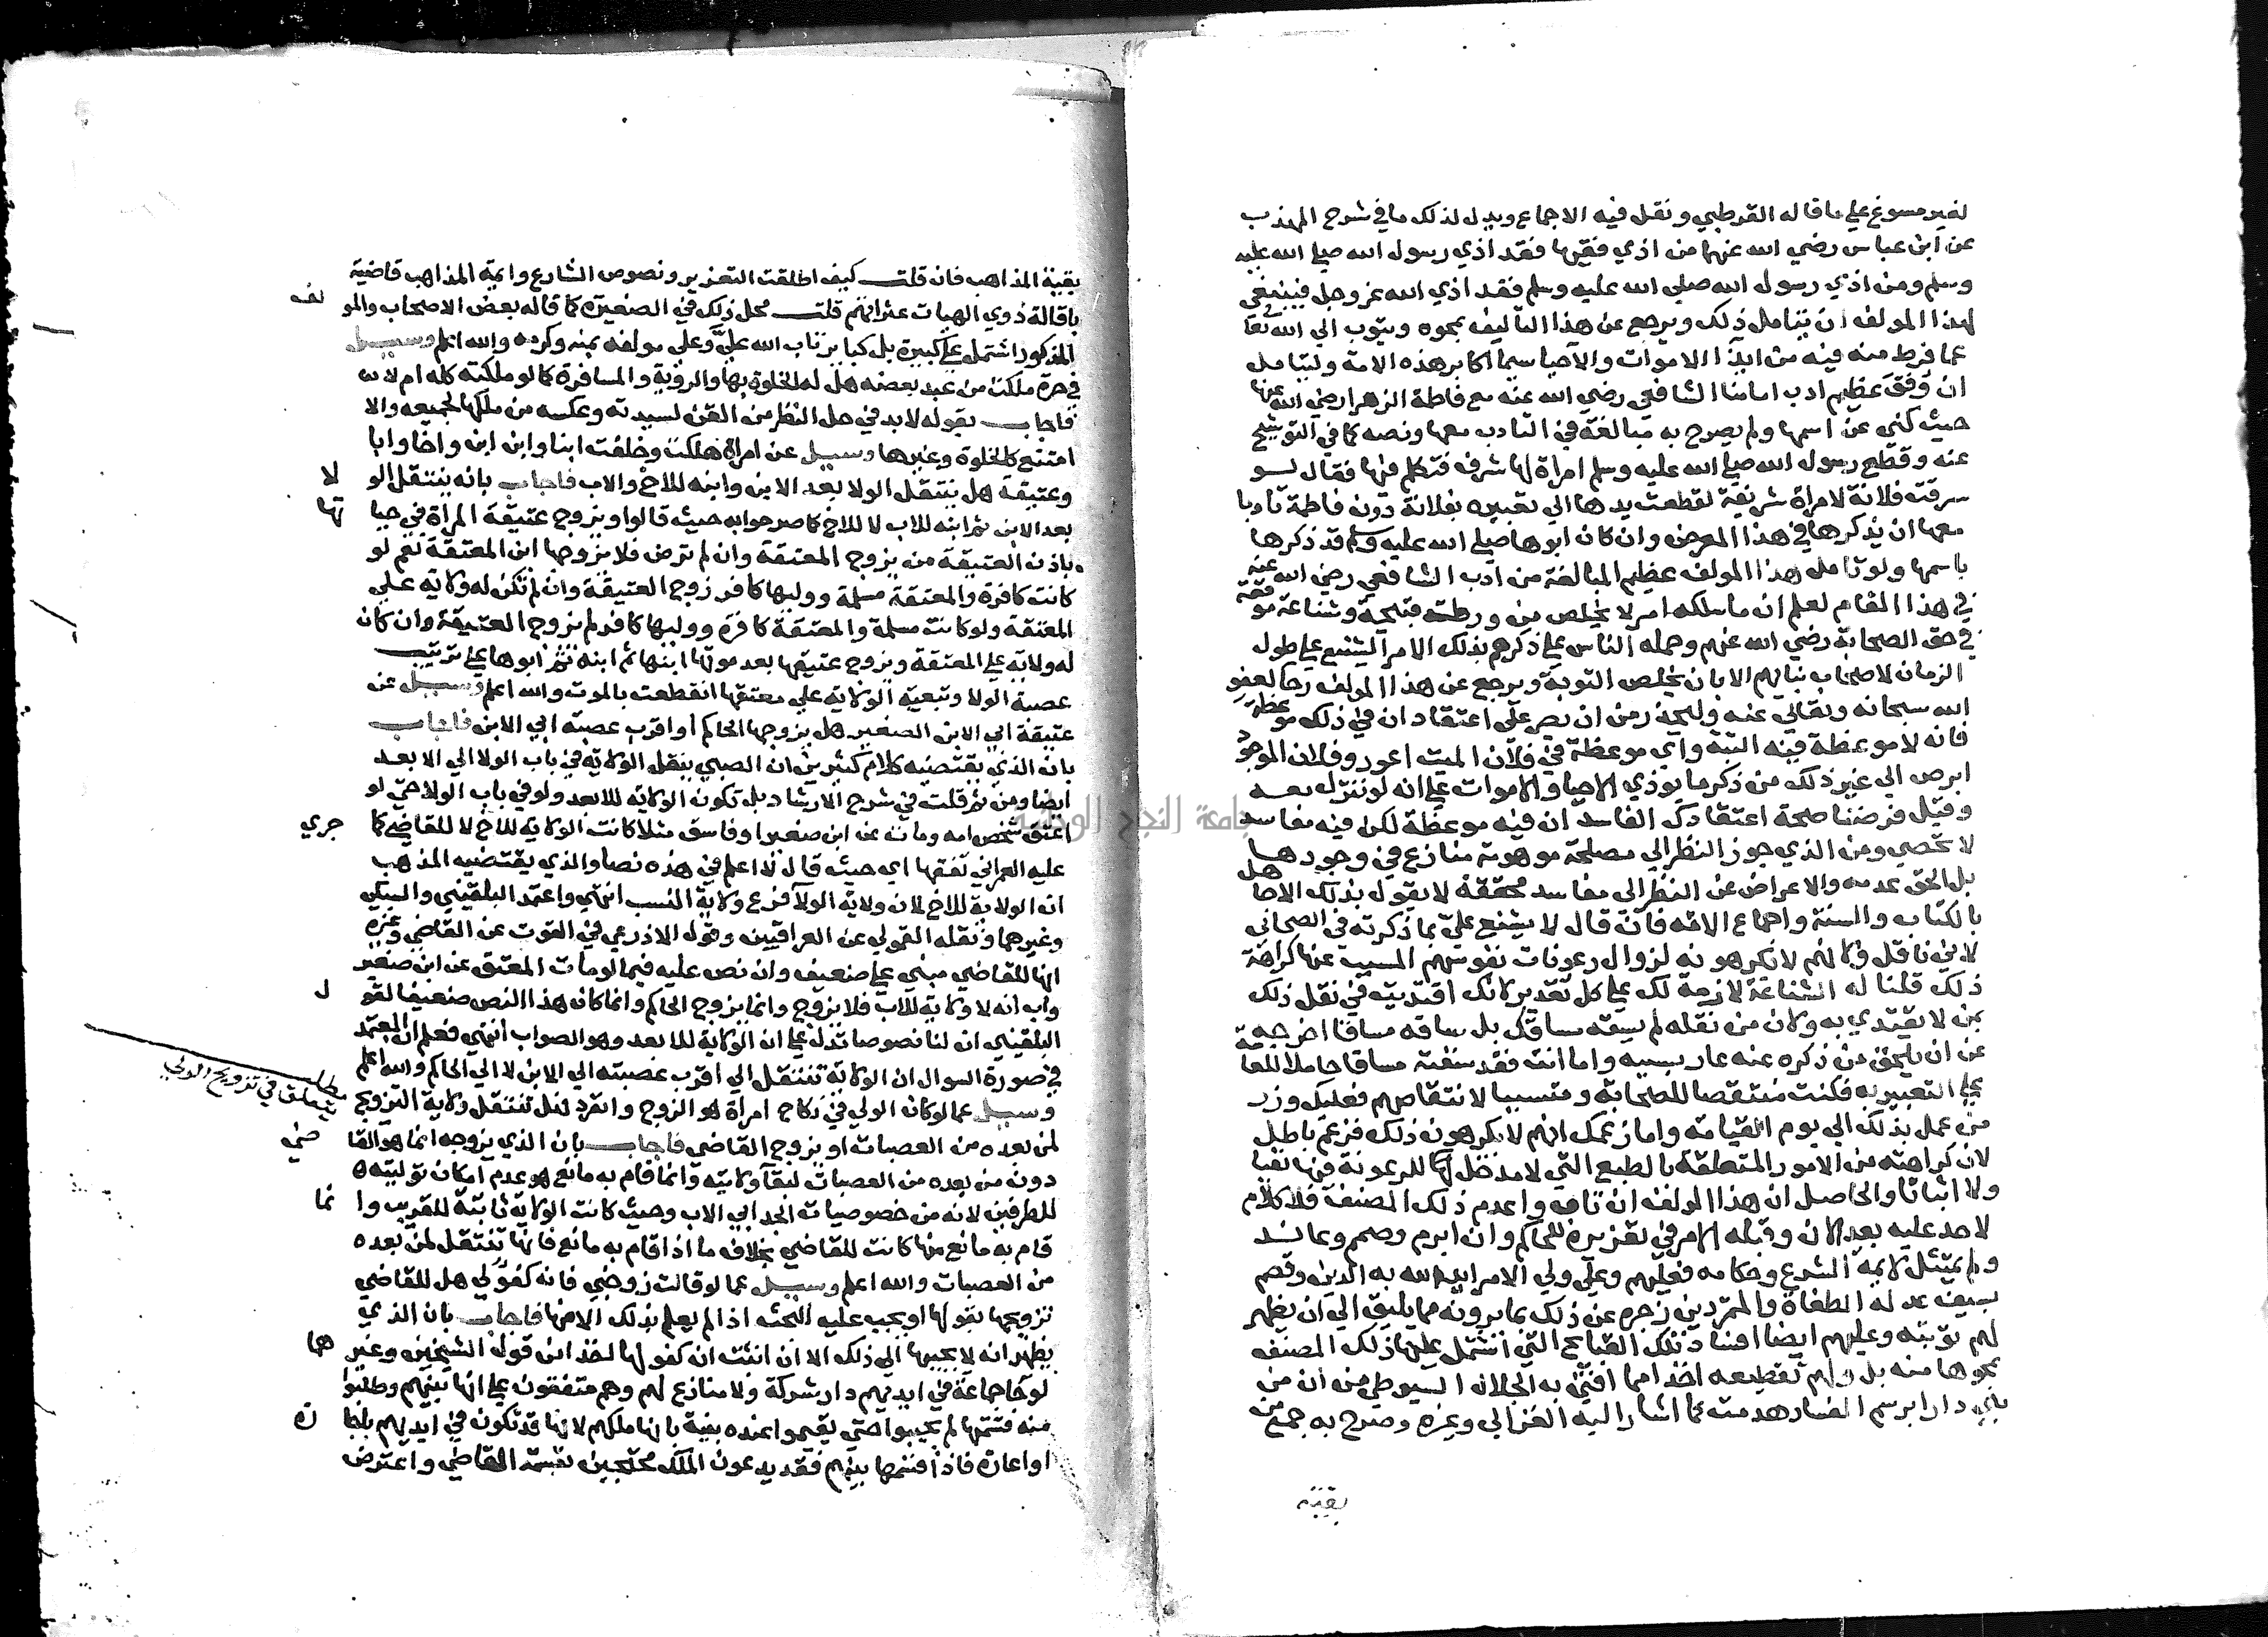 لغير مسوغ علي ما قاله القرطبي ونقل فيه الاجماع ويدل لذلك ما في شرح المهذب
عن ابن عباس رضي الله عنهما من اذي فقيها فقد اذي رسول الله صلي الله عليه
وسلم ومن اذي رسول الله صلي الله عليه وسلم فقد اذي الله عز وجل فينبغي
لهذا المولف ان يتامل ذلك ويرجع عن هذا التاليف بمحوه ويتوب الي الله تعا
عما فرط منه فيه من ايذا الاموات والاحيا سيما اكابر هذه الامة وليتامل
ان وفق عظيم ادب امامنا الشافعي رضي الله عنه مع فاطمة الزهرا رضي الله عنها
حيث كني عن اسمها ولم يصرح به مبالغة في التادب معها ونصه كما في التوشيح
عنه وقطع رسول الله صلي الله عليه وسلم امراة لها شرف فتكلم فيها فقال لو
سرقت فلانة لامراة شريفة لقطعت يدها الي تعبيره بفلانة دون فاطمة تادبا
معها ان يذكرها في هذا المعرض وان كان ابوها صلي الله عليه وسلم قد ذكرها
باسمها ولو تامل هذا المولف عظيم المبالغة من ادب الشافعي رضي الله عنه
في هذا المقام لعلم ان ما سلكه امر لا يخلص من ورطته قبيحة وشناعة موقعة
في حق الصحابة رضي الله عنهم وحمله الناس علي ذكرهم بذلك الامر الشنيع علي طول
الزمان لاصحاب نبالهم الا بان يخلص التوبة ويرجع عن هذا المولف رجا لعفو
الله سبحانه وتعالي عنه وليحذر من ان يصر علي اعتقاد ان في ذلك موعظة
فانه لا موعظة فيه البتة واي موعظة في فلان الميت اعور وفلان الموجود
ابرص الي غير ذلك من ذكر ما يوذي الاحيا والاموات علي انه لو تنزل معه
وقيل فرضنا صحة اعتقادك الفاسد ان فيه موعظة لكن فيه مفاسد
لا تحصي ومن الذي جوز النظر الي مصلحة موهومة منازع في وجودها
بل الحق عدمه والاعراض عن النظر الي مفاسد محققة لا يقول بذلك الا جاهل
بالكتاب والسنة واجماع الامه فان قال لا يشنع علي بما ذكرته في الصحابي
لاني ناقل ولانهم لا يكرهونه لزوال رعونات نفوسهم المسبب عنها كراهة
ذلك قلنا له الشناعة لازمة لك علي كل تقدير لانك اقتديت في نقل ذلك
بمن لا يقتدي به ولان من نقله لم يسقه مساقك بل ساقه مساقا اخرجه
عن ان يلحق من ذكره عنه عار بسببه واما انت فقد سقته مساقا حاملا للعا
علي التعبير به فكنت منتقصا للصحابة ومتسببا لانتقاصهم فعليك وزر
من عمل بذلك الي يوم القيامة واما زعمك انهم لا يكرهون ذلك فزعم باطل
لان كراهته من الامور المتعلقة بالطبع التي لا مدخل لها للرعونة فيها نفيا
ولا اثباتا والحاصل ان هذا المولف ان تاب واعدم ذلك المصنف فلا كلام
لاحد عليه بعد الان وقبله الامر في تعزيره للحاكم وان ابرم وصمم وعاند
ولم يمتثل لايمة الشرع وحكامه فعليهم وعلي ولي الامر ايد الله به الدين وقصم
بسيف عدله الطغاة والمتمردين زجره عن ذلك بما يرونه مما يليق الي ان يظهر
لهم توبته وعليهم ايضا افساد تلك القبايح التي اشتمل عليها ذلك المصنف
بمحوها منه بل ولهم تقطيعه اخذا مما افتي به الجلال السيوطي من ان من
بني دارا برسم الفساد هدمت كما اشار اليه الغزالي وغيره وصرح به جمع من
بقية
بقية المذاهب فان قلت كيف اطلقت التعزير ونصوص الشارع وايمة المذاهب قاضية
باقالة ذوي الهيات عثراتهم قلت محل ذلك في الصغيرة كما قاله بعض الاصحاب والمولف
المذكور اشتمل علي كبيرة بل كباير تاب الله علي وعلي مولفه بمنه وكرمه والله اعلم وسيل
في حرة ملكت من عبد بعضه هل له الخلوة بها والروية والمسافرة كما لو ملكته كله ام لا
فاجاب بقوله لا بد في حل النظر من القن لسيدته وعكسه من ملكها لجميعه والا
امتنع كالخلوة وغيرها وسيل عن امراة هلكت وخلفت ابنا وابن ابن واخا وابا
وعتيقة هل ينتقل الولا بعد الابن وابنه للاخ والاب فاجاب بانه ينتقل الولا
بعد الابن ثم ابنه للاب لا للاخ كما صرحوا به حيث قالوا ويزوج عتيقة المراة في حياتها
باذن العتيقة من يزوج المعتقة وان لم ترض فلا يزوجها ابن المعتقة نعم لو
كانت كافرة والمعتقة مسلمة ووليها كافر زوج العتيقة وان لم تكن له ولاية علي
المعتقة ولو كانت مسلمة والمعتقة كافرة ووليها كافر لم يزوج العتيقة وان كان
له ولاية علي المعتقة ويزوج عتيقها بعد موتها ابنها ثم ابنه ثم ابوها علي ترتيب
عصبة الولا وتبعية الولاية علي معتقها انقطعت بالموت والله اعلم وسيل عن
عتيقة ابي الابن الصغير هل يزوجها الحاكم او اقرب عصبة ابي الابن فاجاب
بان الذي يقتضيه كلام كثيرين ان الصبي ينقل الولاية في باب الولا الي الابعد
ايضا ومن ثم قلت في شرح الارشاد بل تكون الولاية للابعد ولو في باب الولا حتي لو
اعتق شخص امه ومات عن ابن صغير او فاسق مثلا كانت الولاية للاخ لا للقاضي كما جري
عليه العمراني تفقها اي حيث قال لا اعلم في هذه نصا والذي يقتضيه المذهب
ان الولاية للاخ لان ولاية الولا فرع ولاية النسب انتهي واعتمد البلقيني والسبكي
وغيرهما ونقله القمولي عن العراقيين وقول الاذرعي في القوت عن القاضي وغيره
انها للقاضي مبني علي ضعيف وان نص عليه فيما لو مات المعتق عن ابن صغير
واب انه لا ولاية للاب فلا يزوج وانما يزوج الحاكم وانما كان هذا النص ضعيفا لقول
البلقيني ان لنا نصوصا تدل علي ان الولاية للابعد وهو الصواب انتهي فعلم ان المعتمد
في صورة السوال ان الولاية تنتقل الي اقرب عصبته الي الابن لا الي الحاكم والله اعلم
مطلب يتعلق في تزويج الولي
وسيل عما لو كان الولي في نكاح امراة هو الزوج وانفرد فهل تنتقل ولاية التزويج
لمن بعده من العصبات او يزوج القاضي فاجاب بان الذي يزوجه انما هو القاضي
دون من بعده من العصبات لبقا ولايته وانما قام به مانع هو عدم امكان توليته
للطرفين لانه من خصوصيات الجد ابي الاب وحيث كانت الولاية ثابتة للقريب وانما
قام به مانع منها كانت للقاضي بخلاف ما اذا قام به مانع فانها تنتقل لمن بعده
من العصبات والله اعلم وسيل عما لو قالت زوجني فانه كفو لي هل للقاضي
تزويجها بقولها او يجب عليه البحث اذا لم يعلم بذلك الا منها فاجاب بان الذي
يظهر انه لا يجيبها الي ذلك الا ان اثبت انه كفو لها اخذا من قول الشيخين وغيرهما
لو جا جماعة في ايديهم دار شركة ولا منازع لهم وهم متفقون علي انها بينهم وطلبوا
منه قسمتها لم يجيبوا حتي يقيموا عنده بينة بانها ملكهم لانها قد تكون في ايديهم باجارة
او اعارة فاذا قسمها بينهم فقد يدعون الملك محتجين بقسمة القاضي واعترض
جامعة النجاح الوطنية